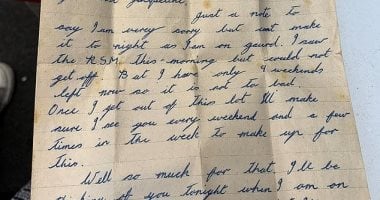 Jacqueline
Just a note to
say I am verey sorry but isnt make
it to night as I am on gaurd. I saw
the R.S.M this-morning but could not
get off. But I have only 4 weekends
left now so it is not to bad.
Once I get out of this lot Ill make
sure I see you every weekend and a few
times in the week to make up for
this.
Well so much for that, I'll be
thinking of you tonight when I am on